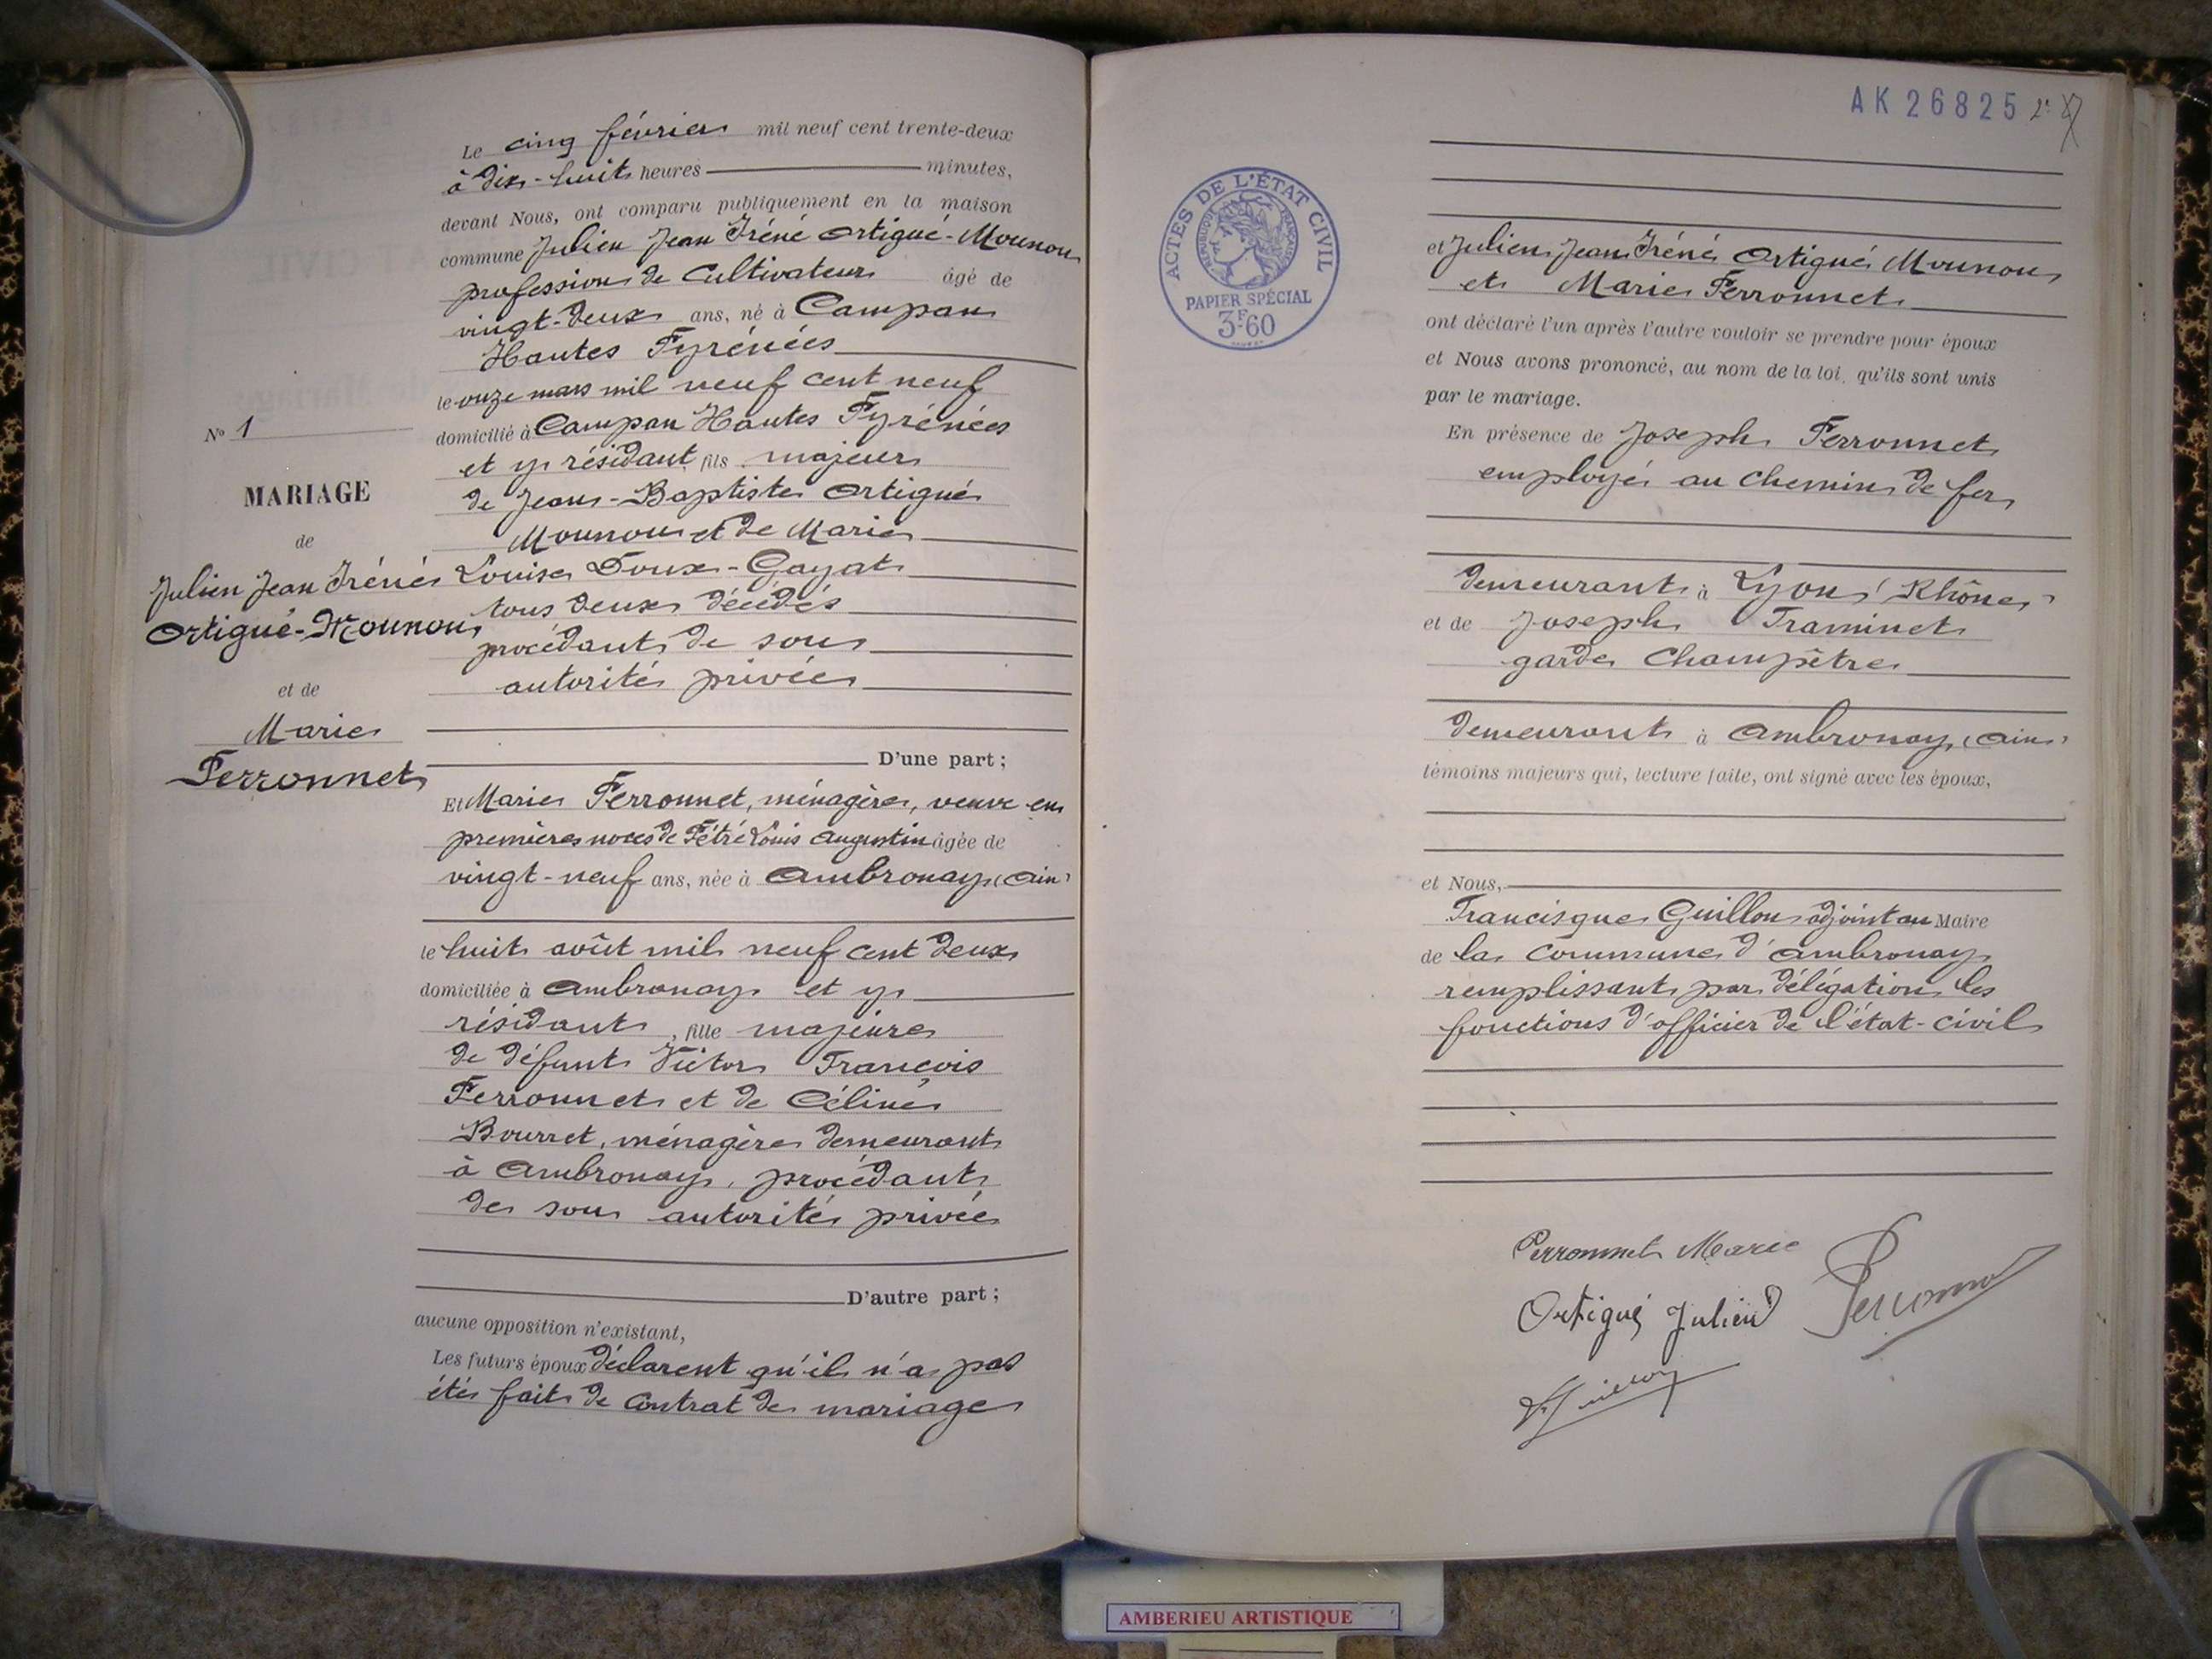 Le cinq février mil neuf cent trente-deux
à dix-huit heures minutes,
devant Nous, ont comparu publiquement en la maison
commune Julien Jean Iréné Ortigué-Mounou
profession de Cultivateur âgé de
vingt-deux ans, né à Campan
Hautes Pyrénées
le onze mars mil neuf cent neuf
domicilié à Campan Hautes Pyrénées
et y résidant, fils majeur
de Jean-Baptiste Ortigué
Mounou et de Marie
Louise Doux-Gayat
tous deux décédés
procédant de son
autorité privée
D'une part ;
Et Marie Perronnet, ménagère, veuve en
premières noces de Pétré Louis Augustin âgée de
vingt-neuf ans, née à Ambronay (Ain)
le huit août mil neuf cent deux
domiciliée à Ambronay et y
résidant, fille majeure
de défunt Victor François
Perronnet et de Céline
Bourret, ménagère demeurant
à Ambronay, procédant
de son autorité privée
D'autre part ;
aucune opposition n'existant,
Les futurs époux déclarent qu'il n'a pas
été fait de contrat de mariage
N° 1
MARIAGE
de
Julien Jean Iréné
Ortigué-Mounou
et de
Marie
Perronnet
AK 26825
ACTES DE L'ÉTAT CIVIL
RÉPUBLIQUE FRANÇAISE
PAPIER SPÉCIAL
3F60
et Julien Jean Iréné Ortigué Mounou
et Marie Perronnet
ont déclaré l'un après l'autre vouloir se prendre pour époux
et Nous avons prononcé, au nom de la loi, qu'ils sont unis
par le mariage.
En présence de Joseph Perronnet
employé au Chemin de fer
demeurant à Lyon (Rhône)
et de Joseph Traminet
garde Champêtre
demeurant à Ambronay (Ain)
témoins majeurs qui, lecture faite, ont signé avec les époux,
et Nous,
Francisque Guillon adjoint au Maire
de la Commune d'Ambronay
remplissant par délégation les
fonctions d'officier de l'état-civil
Perronnet Marie
Ortigué Julien
Perronnet
F. Guillon
AMBERIEU ARTISTIQUE